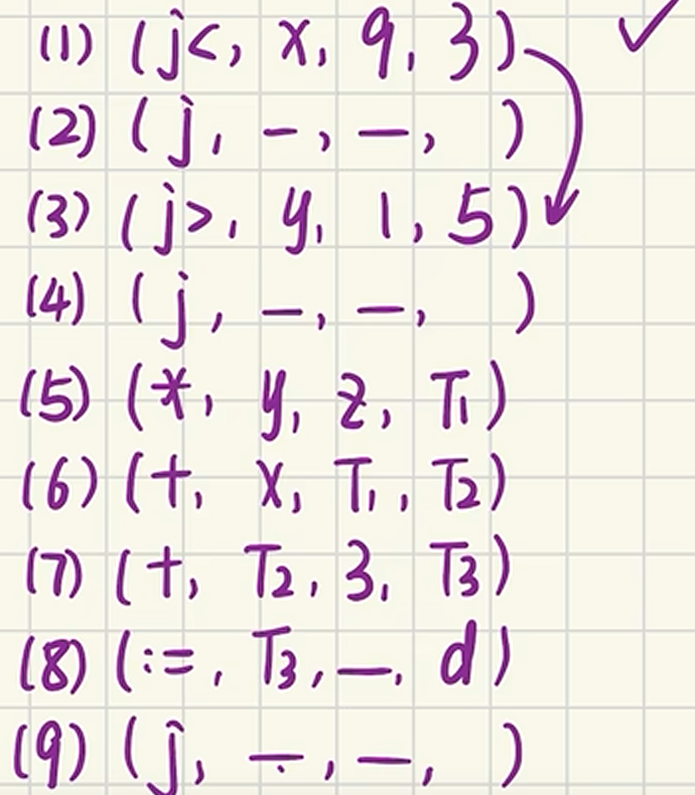 (1) (j<, x, 9, 3)
(2) (j, —, —,  )
(3) (j>, y, 1, 5)
(4) (j, —, —,  )
(5) (*, y, z, T₁)
(6) (+, x, T₁, T₂)
(7) (+, T₂, 3, T₃)
(8) (:=, T₃, —, d)
(9) (j, —, —,  )